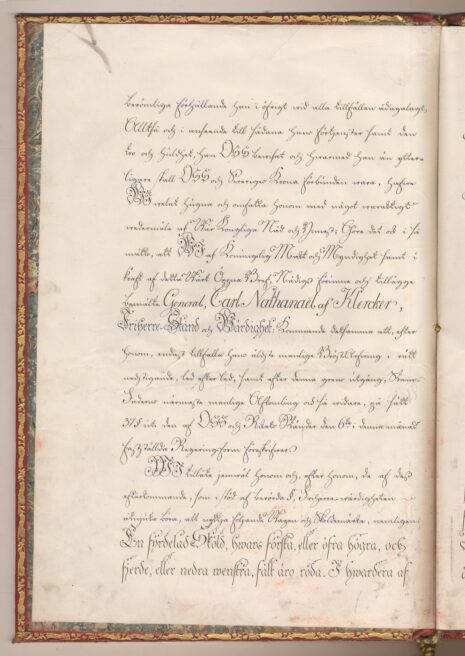 berömliga förhållande han i öfrigt wid alla tillfällen ådagalagt,
Alltså och i anseende till sådane hans förtjenster samt den
tro och huldhet, han OSS bewisat och hwarmed han än ytter-
ligare skall OSS och Sweriges Krona förbunden wara, hafwe
WI welat hugna och anse honom med något
wedermäle af Wår Kongliga Nåd och Ynnest; Göre det ock i så
måtto, att WI af Konungslig Makt och Myndighet samt i
kraft af detta Wårt Öppna Bref, Nådigst förunne och tillägge
bemälte General, Carl Nathanael af Klercker,
Friherre-Stånd och Wärdighet, kommande detsamma att, efter
honom, endast tillfalla hans äldste manlige Bröst-Arfwinge i rätt
nedstigande led efter led, samt efter denna grens utgång, Stam-
fadrens närmaste manlige Afkomling och så widare, på sätt
37 § uti den af OSS och Riksens Ständer den 6te dennes månad
fastställda Regeringsform föreskrifwer.
WI tillåte jemwäl honom och, efter honom, de af dess
efterkommande, som i stöd af berörde §, Friherre-wärdigheten
åtnjuta böra, att nyttja följande Wapen och Sköldemärke, nemligen
En fyrdelad Sköld, hwars första, eller öfra högra, och
fjerde, eller nedra wenstra, fält äro röda. I hwardera af